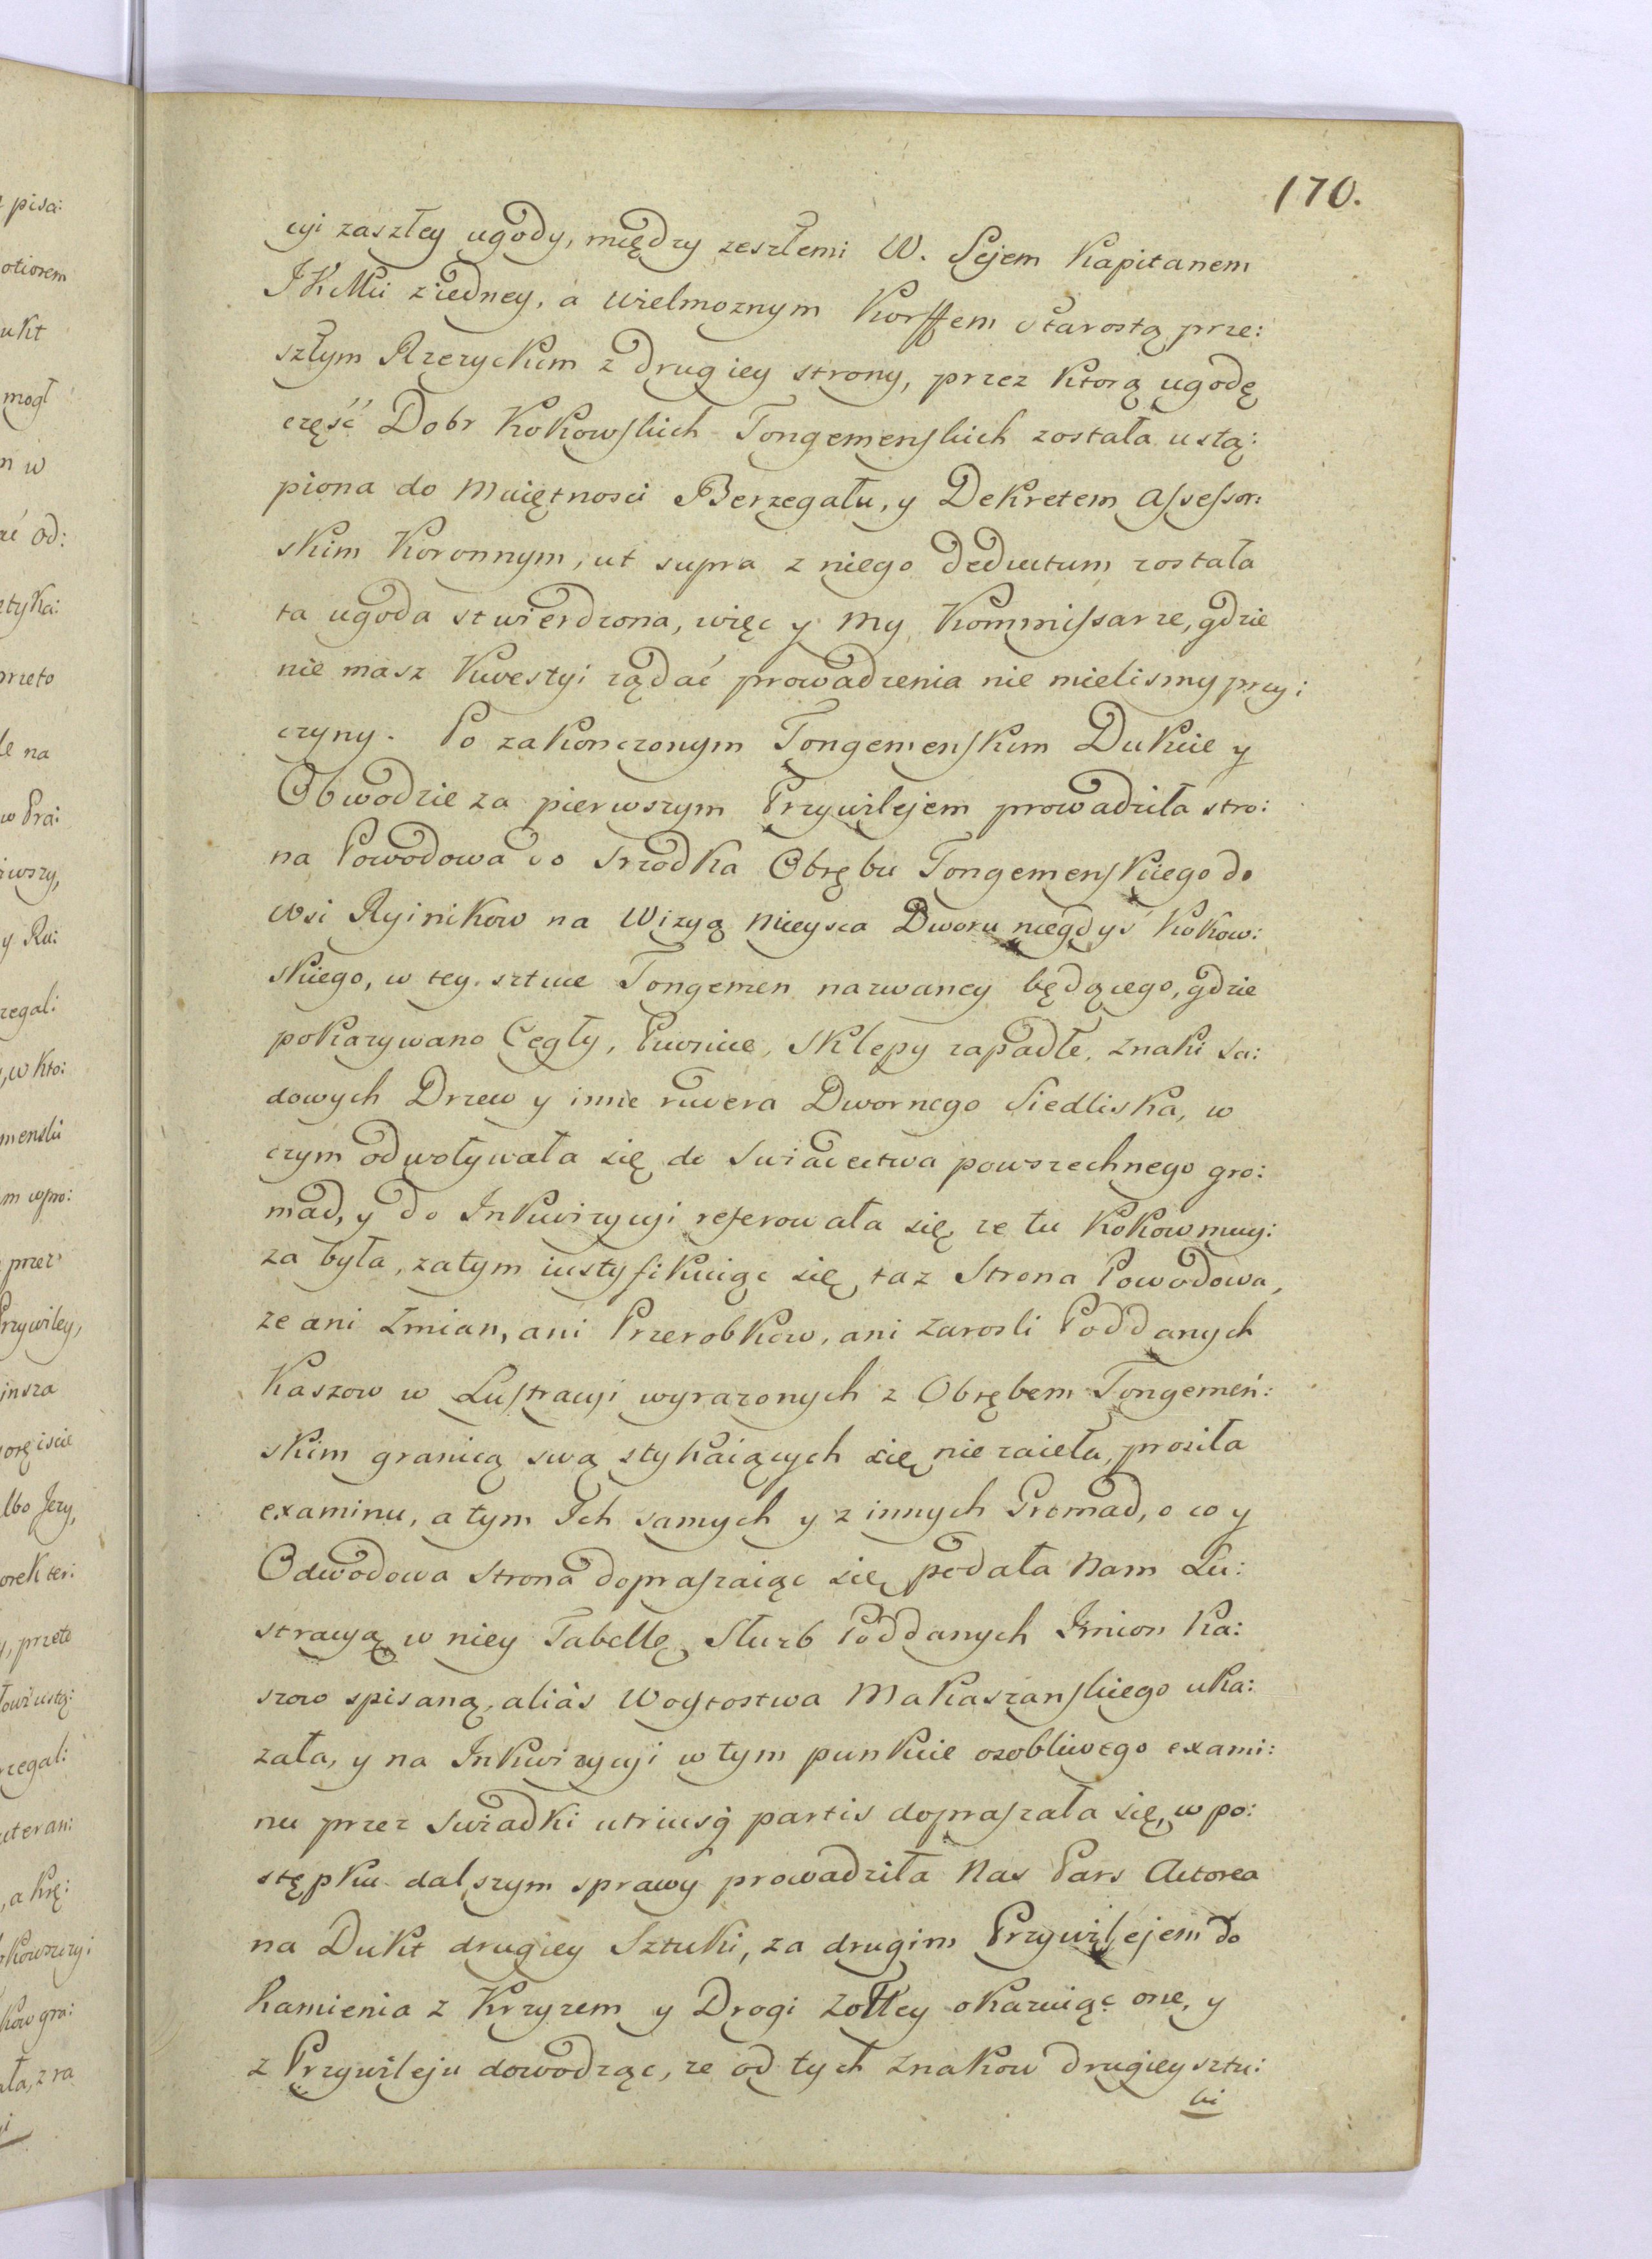 170.
cyi zaszłey ugody, między zeszłemi W. Pejem Kapitanem
JKMci z iedney, a Wielmoznym Korffem Starostą prze:
szłym Rzeryckim z drugiey strony, przez ktorą ugodę
część Dobr Kokowskich Tongemenskich została ustą:
piona do Maiętnosci Berzegału, y Dekretem Assessor:
skim Koronnym, ut supra z niego deductum została
ta ugoda stwierdzona, więc y My Kommissarze, gdzie
nie masz Kwestyi ządać prowadzenia nie mielismy przy:
czyny. Po zakonczonym Tongemenskim Dukcie y
Obwodzie za pierwszym Przywilejem prowadziła stro:
na Powodowa do Srzodka Obrębu Tongemenskiego do
Wsi Ryinikow na Wizyą Mieysca Dworu niegdys Kokow:
skiego, w tey sztuce Tongemen nazwaney będącego, gdzie
pokazywano Cegły, Piwnice, Sklepy zapadłe, znaki Sa:
dowych Drzew y inne ruwera Dwornego Siedliska, w
czym odwoływała się do Swiadectwa powszechnego gro:
mad, y do Inkwizycyi referowała się, ze tu Kokowmuy:
za była, zatym iustyfikuiąc się taz Strona Powodowa,
ze ani Zmian, ani Przerobkow, ani Zarosli Poddanych
Kaszow w Lustracyi wyrazonych z Obrębem Tongemeń:
skim granicą swą stykaiących się nie zaieła, prosiła
examinu, a tym Ich samych y z innych Gromad, o co y
Odwodowa Strona dopraszaiąc się podała Nam Lu:
stracyą w niey Tabellę Słuzb Poddanych Imion Ka:
szow spisaną, aliàs Woytostwa Makaszanskiego uka:
zała, y na Inkwizycyi w tym punkcie osobliwego exami:
nu przez Swiadki utriusq partis dopraszała się, w po:
stępku dalszym sprawy prowadziła Nas Pars Actorea
na Dukt drugiey Sztuki, za drugim Przywilejem do
Kamienia z Krzyzem y Drogi Zołtey okazuiąc one, y
z Przywileju dowodząc, ze od tych Znakow drugiey sztu:
ki